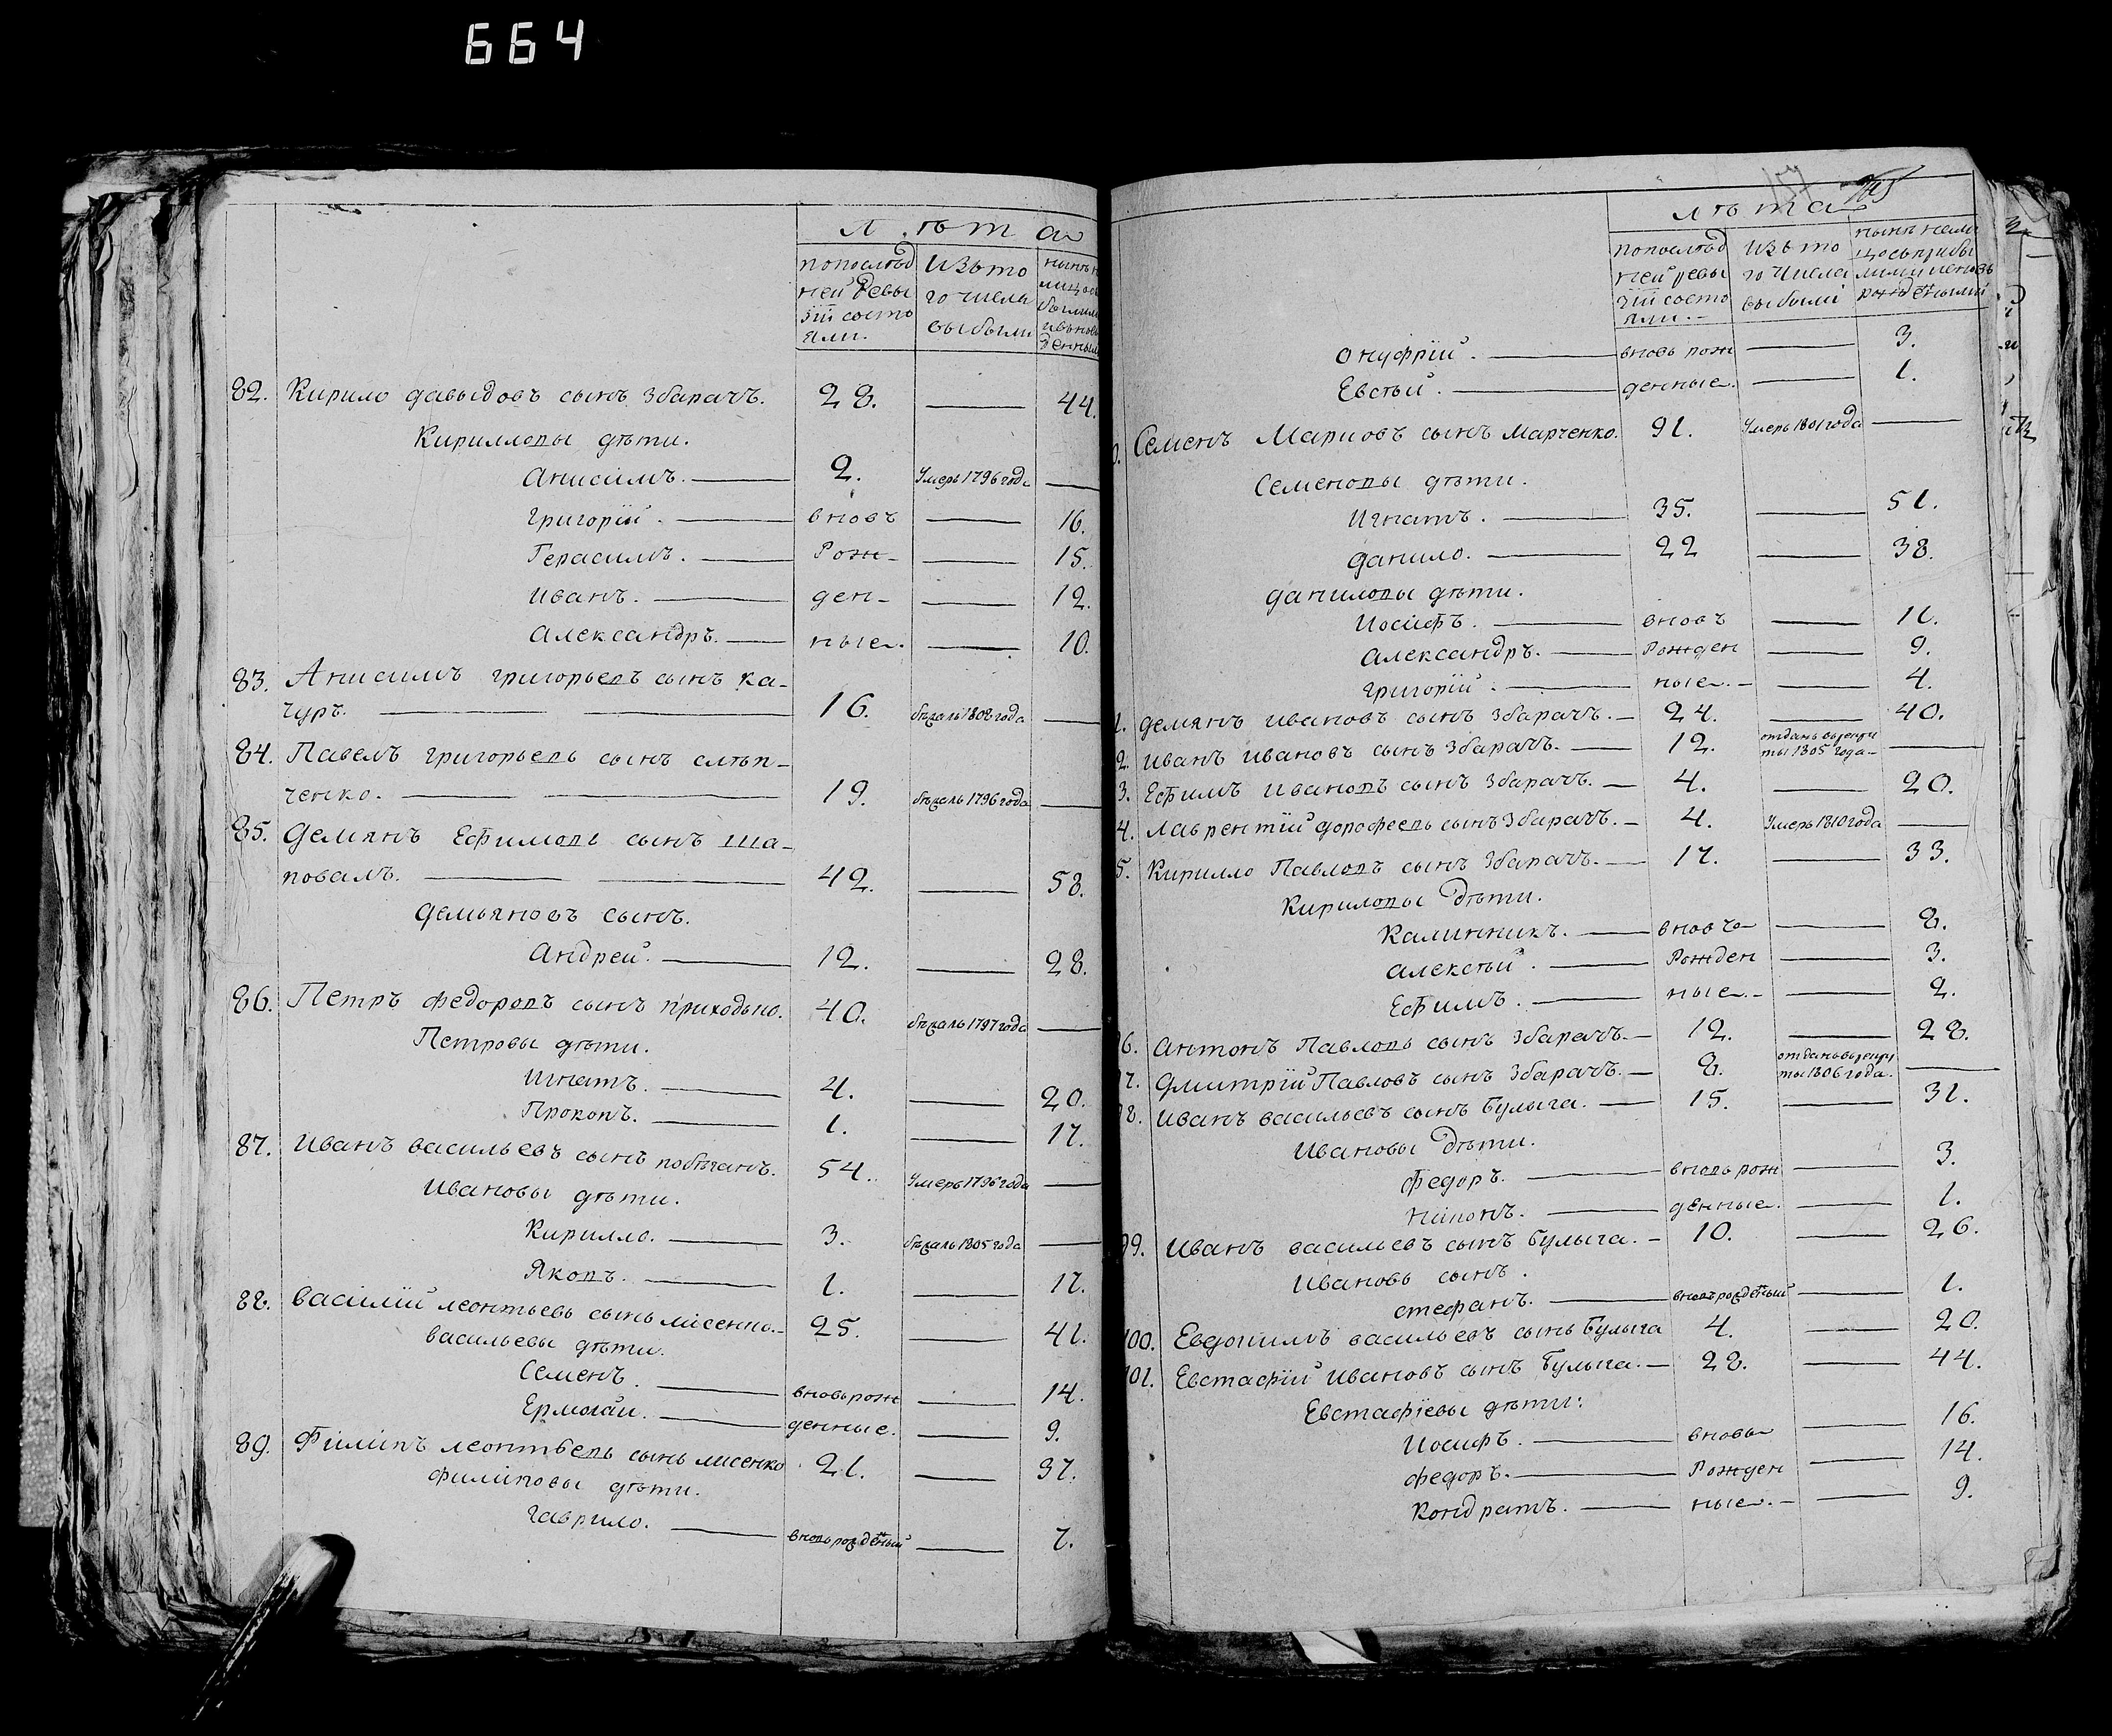 664
лѣта
пополѣд
ней Ревы
зіи состо
яли.
Изъ то
го числа
выбыли
82. Кирило давыдовъ сынъ Збарачъ. 28. 44.
Кирилловы дѣти.
Анисимъ. 2. Умеръ 1796 года
григорій. вновъ 16.
Герасимъ. Рож- 15.
Иванъ. ден- 12.
Александръ. ные. 10.
83. Анисимъ григорьевъ сынъ ка-
чуръ. 16. бѣжалъ 1802 года
84. Павелъ григорьевъ сынъ слѣп-
ченко. 19. бѣжалъ 1796 года
85. Демянъ Ефимовъ сынъ ша-
повалъ. 42. 58.
Демьяновъ сынъ.
Андрей. 12. 28.
86. Петръ федоровъ сынъ приходько. 40. бѣжалъ 1797 года
Петровы дѣти.
Игнатъ. 4. 20.
Прокопъ. 1. 17.
87. Иванъ васильевъ сынъ побѣганъ. 54. Умеръ 1796 года
Ивановы дѣти.
Кирилло. 3. бѣжалъ 1805 года
Яковъ. 1. 17.
88. василій леонтьевъ сынъ лісенко. 25. 41.
васильевы дѣти.
Семенъ. вновь рож 14.
Ермолай. денные. 9.
89. Філіпъ леонтьевъ сынъ лисенко 21. 37.
филіповы дѣти.
гаврило. вновь рожденый 7.
лѣта
пополѣд
ней ревы
зіи состо
яли.
Изъ то
го числа
выбыли
онуфрій. вновь рож 3.
Евсѣй. денные. 1.
Семенъ Марковъ сынъ Марченко. 91. Умеръ 1801 года
Семеновы дѣти.
Игнатъ. 35. 51.
данило. 22 38.
даниловы дѣти.
Иосифъ. вновъ 11.
Александръ. Рожден 9.
григорій. ные. 4.
1. демянъ ивановъ сынъ Збарачъ. 24. 40.
2. иванъ ивановъ сынъ Збарачъ. 12. отданъ врекру
ты 1805 года
3. Ефимъ ивановъ сынъ Збарачъ. 4. 20.
4. лаврентій дорофеевъ сынъ Збарачъ. 4. Умеръ 1810 года
5. Кирилло Павловъ сынъ Збарачъ. 17. 33.
Кириловы дѣти.
Калинникъ. вновъ 8.
алексѣй. Рожден 3.
Ефимъ. ные. 2.
96. антонъ Павловъ сынъ Збарачъ. 12. 28.
97. Дмитрій Павловъ сынъ Збарачъ. 8. отданъ врекру
ты 1806 года.
98. иванъ васильевъ сынъ булыга. 15. 31.
Ивановы дѣти.
Федоръ. вновь рож 3.
Ніконъ. денные. 1.
99. Иванъ васильевъ сынъ булыга. 10. 26.
Ивановъ сынъ.
стефанъ. вновь рожденый 1.
100. Евдокимъ васильевъ сынъ булыга 4. 20.
101. Евстафій ивановъ сынъ булыга. 28. 44.
Евстафіевы дѣти:
Иосифъ. вновь 16.
федоръ. Рожден 14.
Кондратъ. ные. 9.